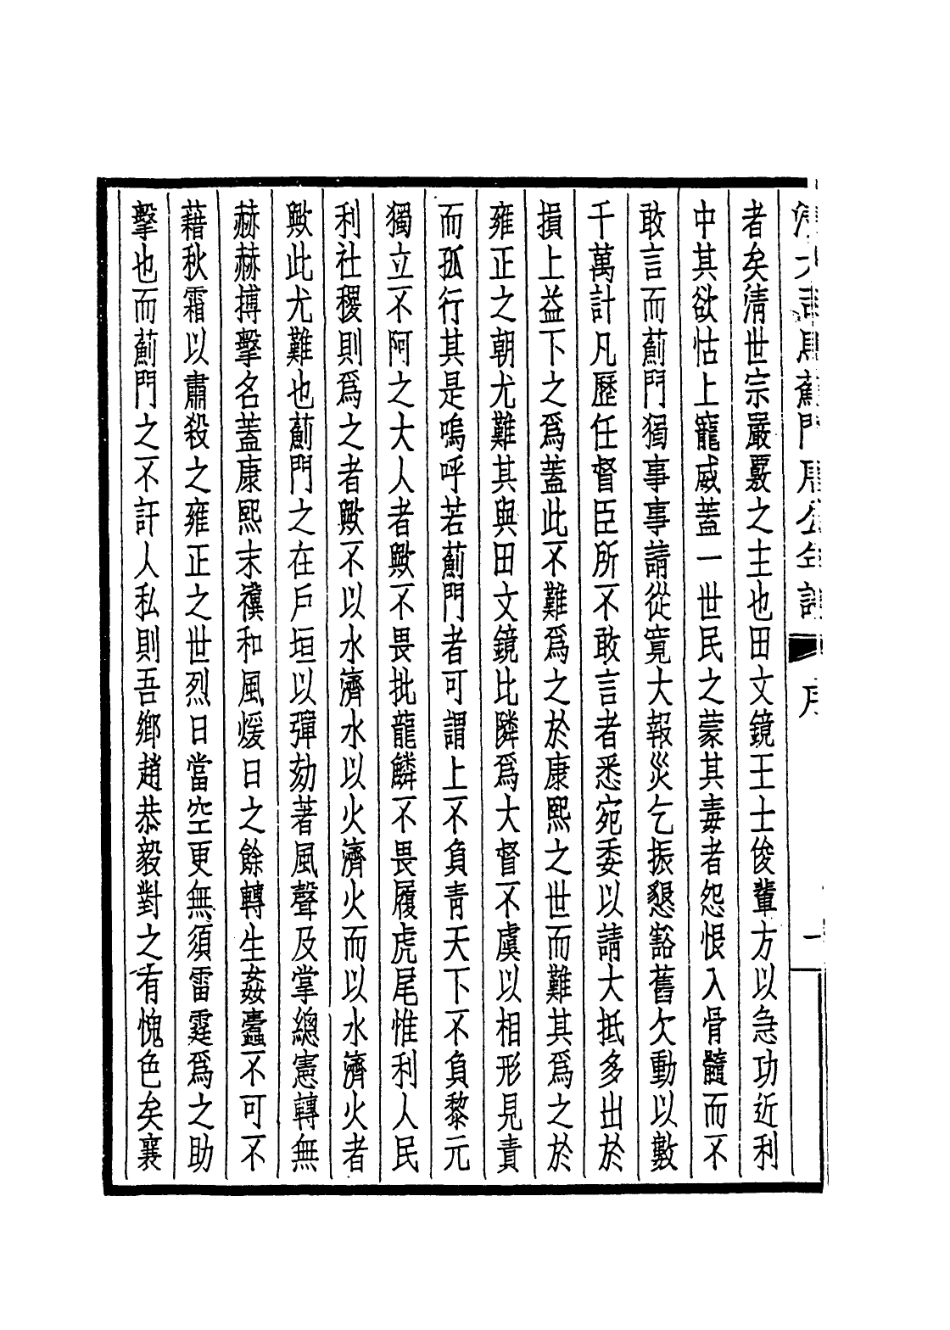 清大司馬薊門唐公年譜 序 一
者矣清世宗嚴覈之主也田文鏡王士俊輩方以急功近利
中其欲怙上寵威蓋一世民之蒙其毒者怨恨入骨髓而不
敢言而薊門獨事事請從寬大報災乞振懇豁舊欠動以數
千萬計凡歷任督臣所不敢言者悉宛委以請大抵多出於
損上益下之爲蓋此不難爲之於康熙之世而難其爲之於
雍正之朝尤難其與田文鏡比隣爲大督不虞以相形見責
而孤行其是嗚呼若薊門者可謂上不負青天下不負黎元
獨立不阿之大人者歟不畏批龍鱗不畏履虎尾惟利人民
利社稷則爲之者歟不以水濟水以火濟火而以水濟火者
歟此尤難也薊門之在戶垣以彈劾著風聲及掌總憲轉無
赫赫搏擊名蓋康熙末禩和風煖日之餘轉生姦蠹不可不
藉秋霜以肅殺之雍正之世烈日當空更無須雷霆爲之助
擊也而薊門之不訐人私則吾鄉趙恭毅對之有愧色矣襄